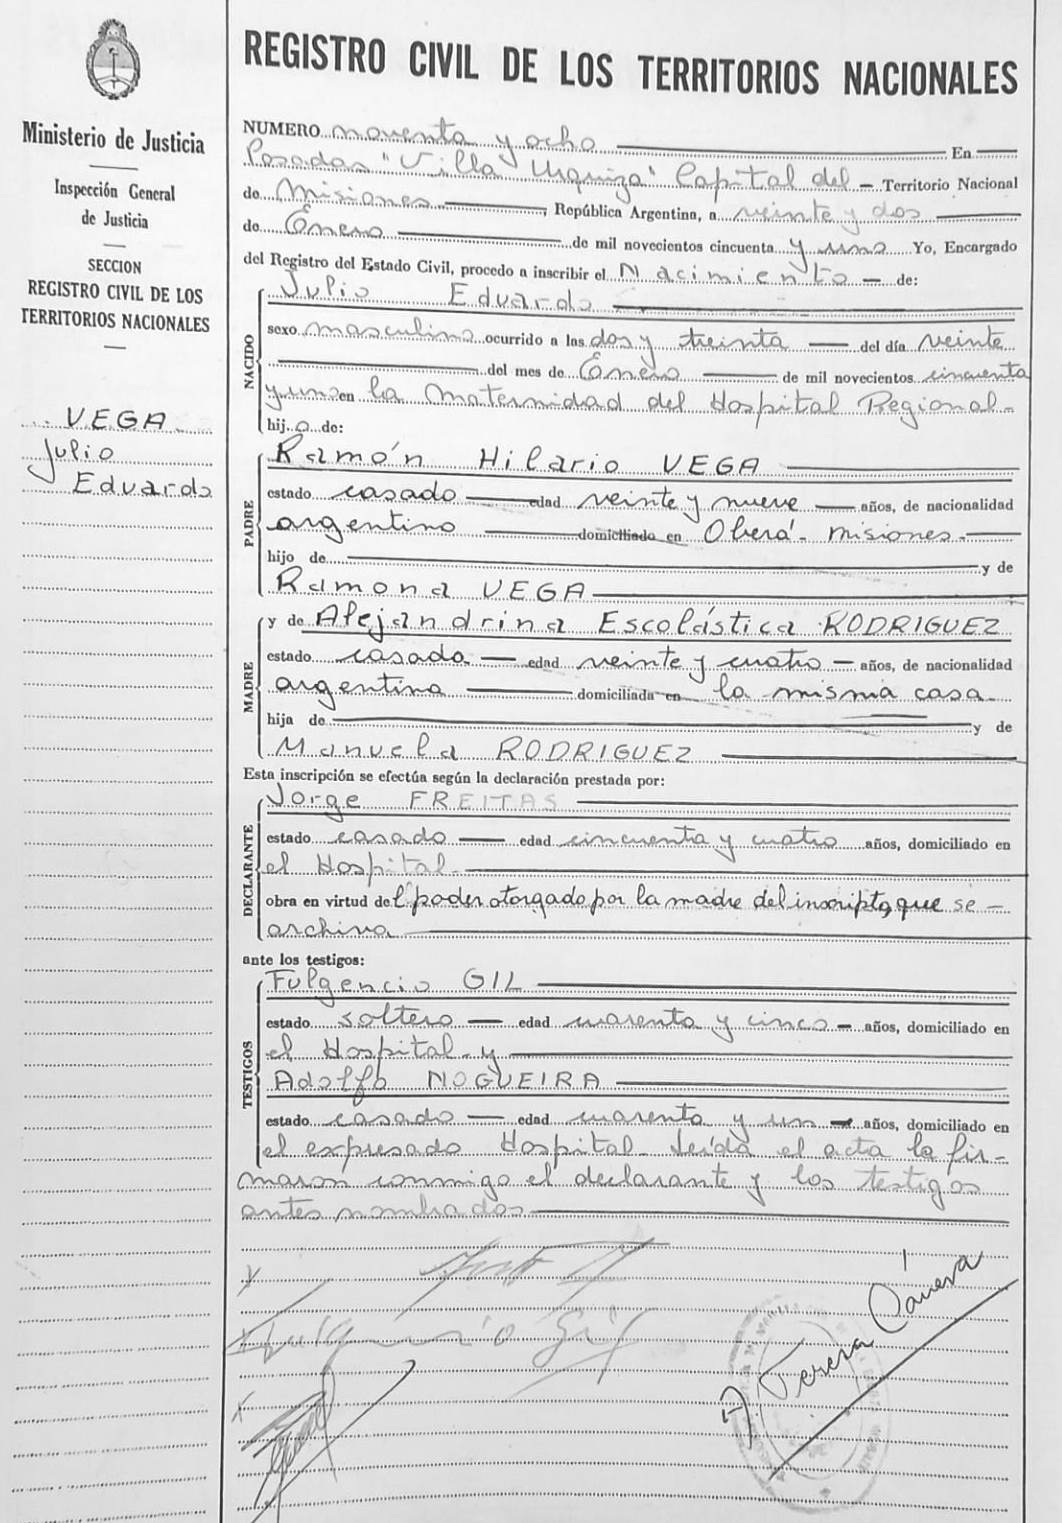 REGISTRO CIVIL DE LOS TERRITORIOS NACIONALES
Ministerio de Justicia
Inspección General
de Justicia
SECCION
REGISTRO CIVIL DE LOS
TERRITORIOS NACIONALES
VEGA
Julio
Eduardo
NUMERO noventa y ocho En
Posadas "Villa Urquiza" Capital del - Territorio Nacional
de Misiones, República Argentina, a veinte y dos
de Enero de mil novecientos cincuenta y uno Yo, Encargado
del Registro del Estado Civil, procedo a inscribir el Nacimiento de:
NACIDO
Julio Eduardo
sexo masculino ocurrido a las dos y treinta del día veinte
del mes de Enero de mil novecientos cincuenta
y uno en la Maternidad del Hospital Regional-
hijo de:
PADRE
Ramón Hilario VEGA
estado casado edad veinte y nueve años, de nacionalidad
argentino domiciliado en Oberá- Misiones.
hijo de y de
Ramona VEGA
MADRE
y de Alejandrina Escolástica RODRIGUEZ
estado casada edad veinte y cuatro años, de nacionalidad
argentina domiciliada en la misma casa
hija de y de
Manuela RODRIGUEZ
Esta inscripción se efectúa según la declaración prestada por:
DECLARANTE
Jorge FREITAS
estado casado edad cincuenta y cuatro años, domiciliado en
el Hospital-
obra en virtud del poder otorgado por la madre del inscripto, que se -
archiva
ante los testigos:
TESTIGOS
Fulgencio GIL
estado soltero edad cuarenta y cinco - años, domiciliado en
el Hospital- y
Adolfo NOGUEIRA
estado casado edad cuarenta y un años, domiciliado en
el expresado Hospital- Leída el acta la fir-
maron conmigo el declarante y los testigos
antes nombrados
Fulgencio Gil
A. Teresa Cánera